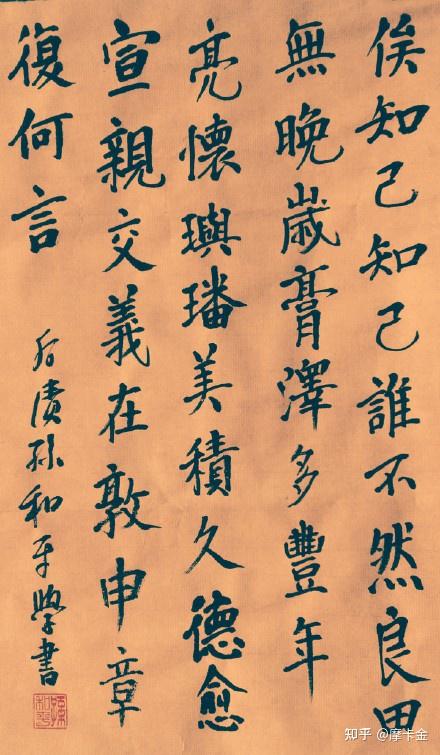 俟知己知己誰不然良田
無晚歲膏澤多豐年
亮懷璵璠美積久德愈
宣親交義在敦申章
復何言
孙和平學書
知乎 @摩卡金